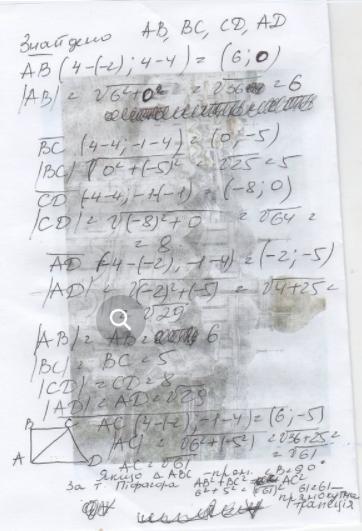 Знайдено AB, BC, CD, AD
AB (4-(-2); 4-4) = (6; 0)
|AB| = √6²+0² = √36 = 6
BC (4-4; -1-4) = (0; -5)
|BC| √0²+(-5)² √25 = 5
CD (-4-4; -1-(-1)) = (-8; 0)
|CD| = √(-8)²+0 = √64 =
= 8
AD (-4-(-2), -1-4) = (-2; -5)
|AD| = √(-2)²+(-5) = √4+25 =
√29
|AB| = AB = 6
|BC| = BC = 5
|CD| = CD = 8
|AD| = AD = √29
B C AC (4-(-2), -1-4) = (6; -5)
|AC| = √6²+(-5²) = √36+25 =
A D AC = √61 = √61
Якщо △ABC - прям. ∠B = 90°
За т. Піфагора AB²+BC² = AC²
6²+5² = (√61)² 61=61 -
прямокутна
трапеція